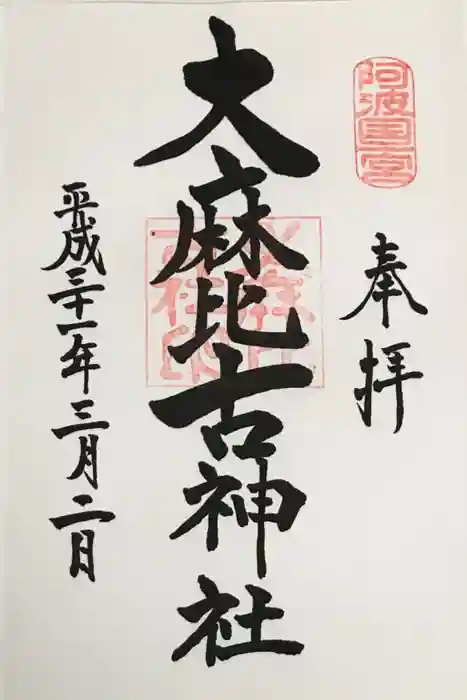 阿波国一宮
奉拝
大麻比古神社
平成三十一年三月二日